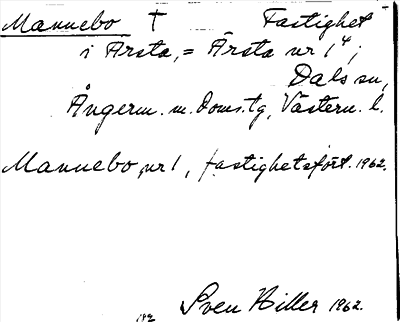 Mannebo † Fastighet
i Årsta, = Årsta nr 1⁴;
Dals sn,
Ångerm. m. doms.tg, Västern. l.
Mannebo nr 1, fastighetsfört. 1962.
Sven Hiller 1962.